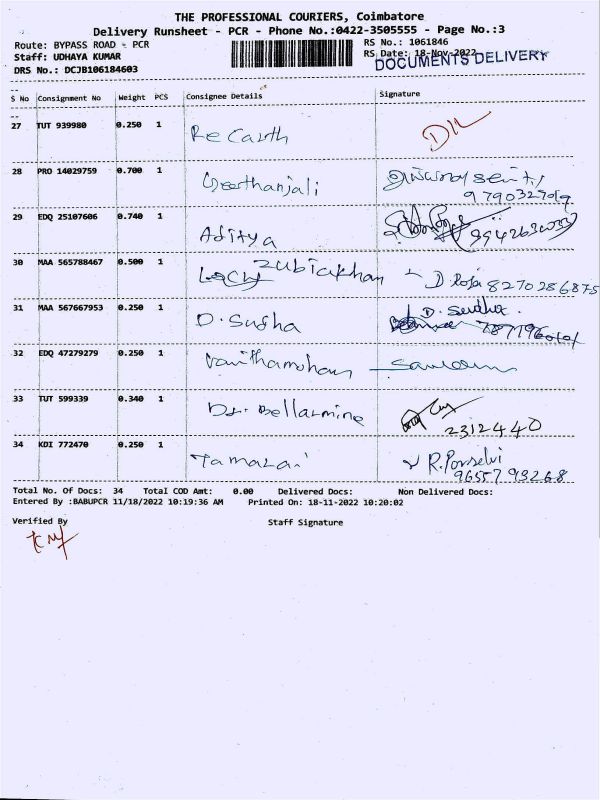 THE PROFESSIONAL COURIERS, Coimbatore
Delivery Runsheet - PCR - Phone No.:0422-3505555 - Page No.:3
Route: BYPASS ROAD - PCR
RS No.: 1061846
Staff: UDHAYA KUMAR
RS Date: 18-Nov-2022
DOCUMENTS DELIVERY
DRS No.: DCJB106184603
S No Consignment No Weight PCS Consignee Details Signature
27 TUT 939980 0.250 1
28 PRO 14029759 0.700 1 Geerthanjali
29 EDQ 25107606 0.740 1 Aditya
30 MAA 565788467 0.500 1 zubiakhan D. Roja 8270286875
31 MAA 567667953 0.250 1 D. Susha D. Sudha
32 EDQ 47279279 0.250 1 Vanithamohan
33 TUT 599339 0.340 1 Dr. Bellarmine
2312440
34 KDI 772470 0.250 1 Tamarai R. Ponselvi
9655793268
Total No. Of Docs: 34 Total COD Amt: 0.00 Delivered Docs: Non Delivered Docs:
Entered By :BABUPCR 11/18/2022 10:19:36 AM Printed On: 18-11-2022 10:20:02
Verified By Staff Signature